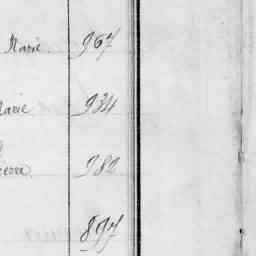 Marie. 967
Marie 934
Pierre. 982
897